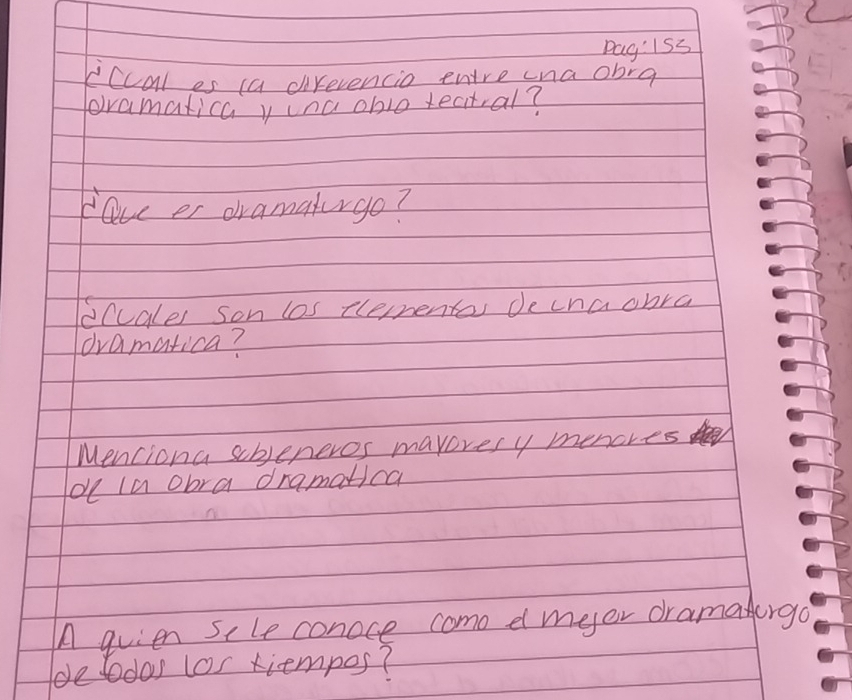 Pag: 155
¿Cual es la diferencia entre una obra
dramatica y una obra teatral?
¿Que es dramaturgo?
¿Cuales son los elementos de una obra
dramatica?
Menciona subjeneros mayores y menores
de la obra dramatica
A quien se le conoce como el mejor dramaturgo
de todos los tiempos?